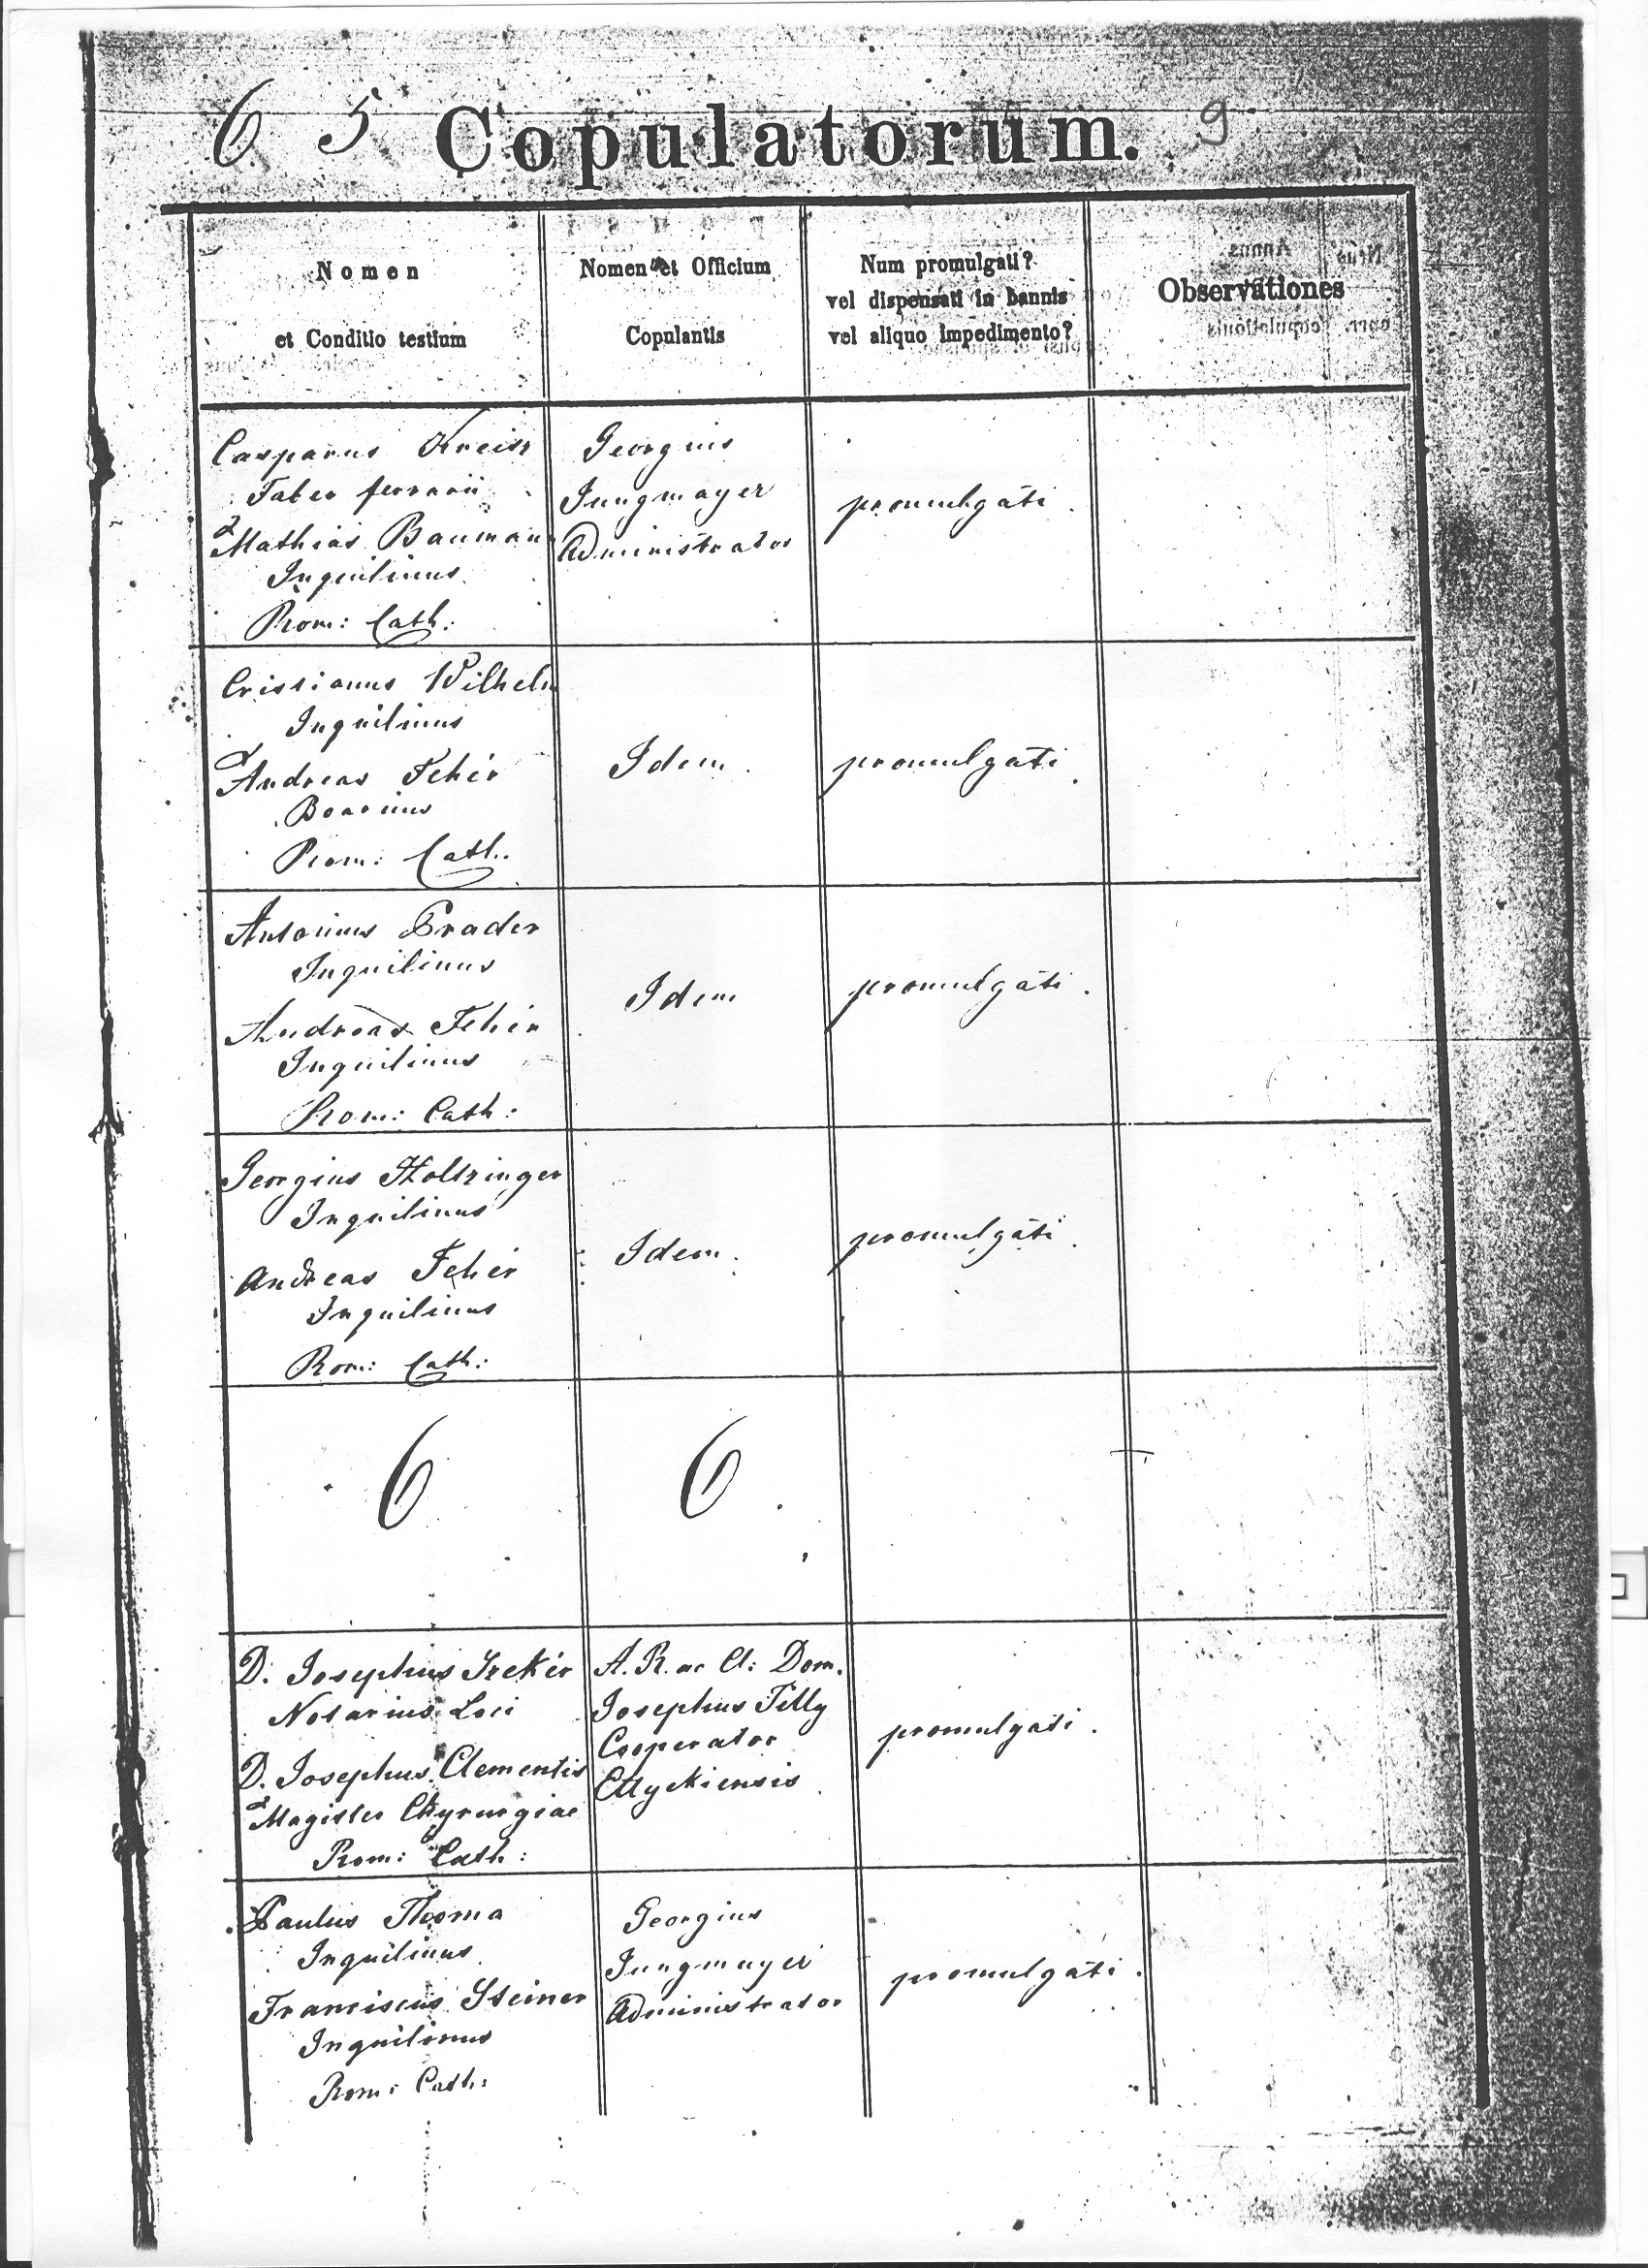 6 5 Copulatorum. 9
Nomen
et Conditio testium
Nomen et Officium
Copulantis
Num promulgati?
vel dispensati in bannis
vel aliquo impedimento?
Observationes
Casparus Kreisz
Faber ferrarii
Mathias Baumann
Inquilinus
Rom: Cath:
Georgius
Jungmayer
Administrator
promulgáti.
Cristianus Wilhelm
Inquilinus
Andreas Fehér
Boarius
Rom: Cath.
Idem.
promulgáti.
Antonius Prader
Inquilinus
Andreas Fehér
Inquilinus
Rom: Cath:
Idem
promulgáti.
Georgius Holtzinger
Inquilinus
Andreas Fehér
Inquilinus
Rom: Cath:
Idem.
promulgáti.
6
6
D. Josephus
Notarius Loci
D. Josephus Clementis
Magister Chyrurgiae
Rom: Cath:
A. R. ac Cl: Dom.
Josephus Tilly
Cooperator
Ettyekiensis
promulgati.
Paulus Thoma
Inquilinus
Franciscus Steiner
Inquilinus
Rom: Cath:
Georgius
Jungmayer
Administrator
promulgáti.